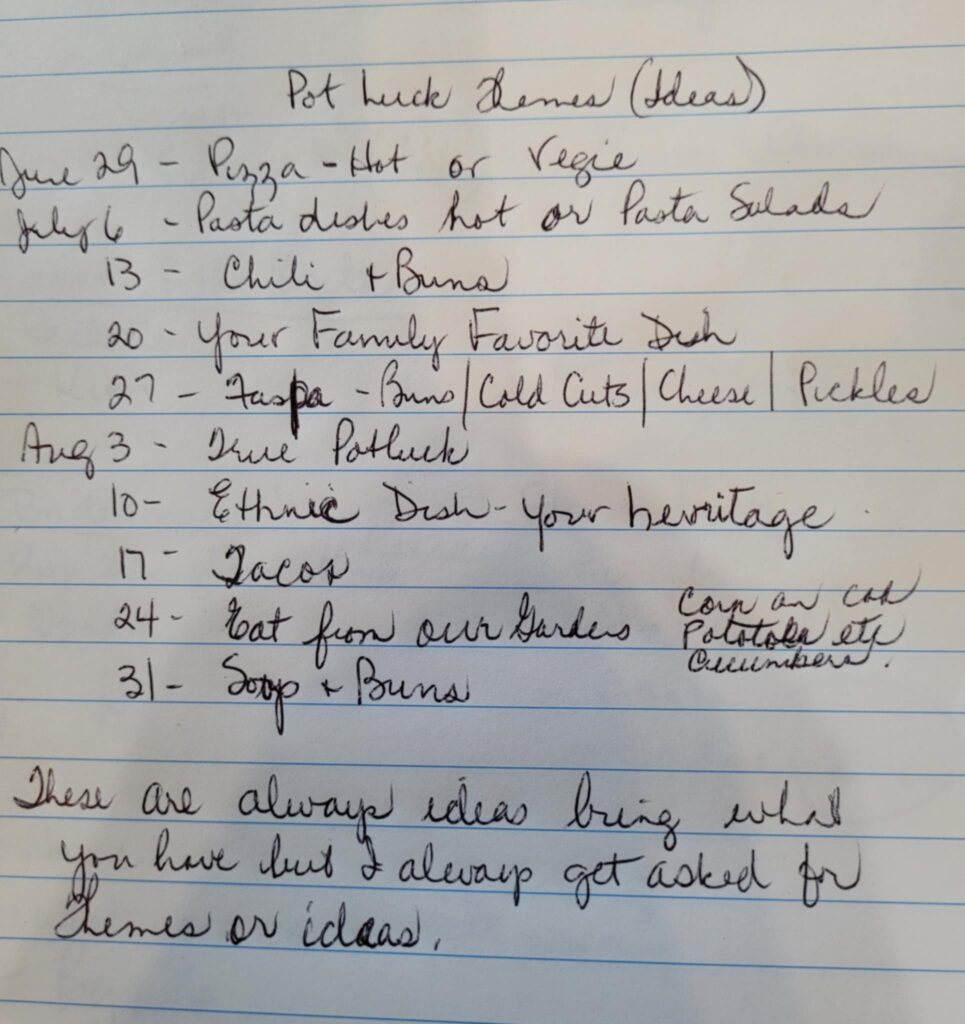 Pot Luck Themes (Ideas)
June 29 - Pizza - Hot or Vegie
July 6 - Pasta dishes hot or Pasta Salads
13 - Chili + Buns
20 - Your Family Favorite Dish
27 - Faspa - Buns | Cold Cuts | Cheese | Pickles
Aug 3 - True Potluck
10 - Ethnic Dish - your hevritage
17 - Tacos
24 - Eat from our Gardens Corn on cob
Pototoes etc
Cucumbers.
31 - Soup + Buns
These are always ideas bring what
you have but I always get asked for
themes or ideas.